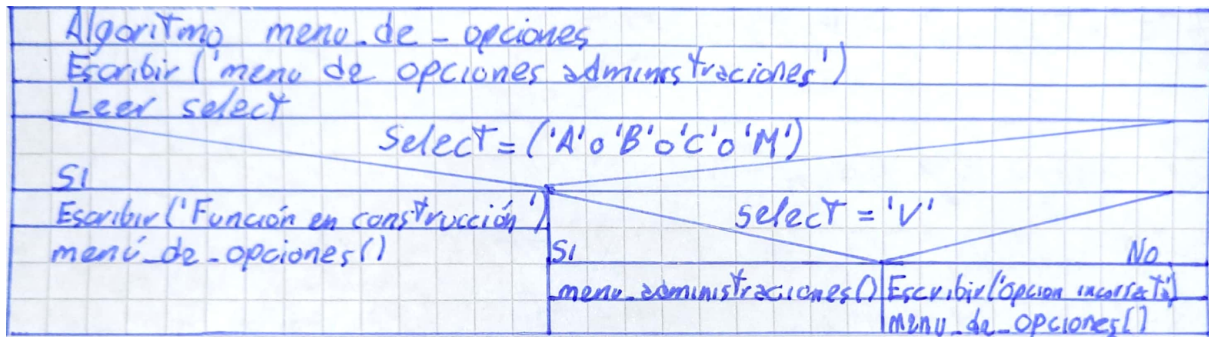 Algoritmo menu_de_opciones
Escribir ('menu de opciones administraciones')
Leer select
Select = ('A' o 'B' o 'C' o 'M')
SI
Escribir ('Función en construcción')
menú_de_opciones()
select = 'V'
SI
No
menu_administraciones()
Escribir ('opcion incorrecta')
menu_de_opciones()